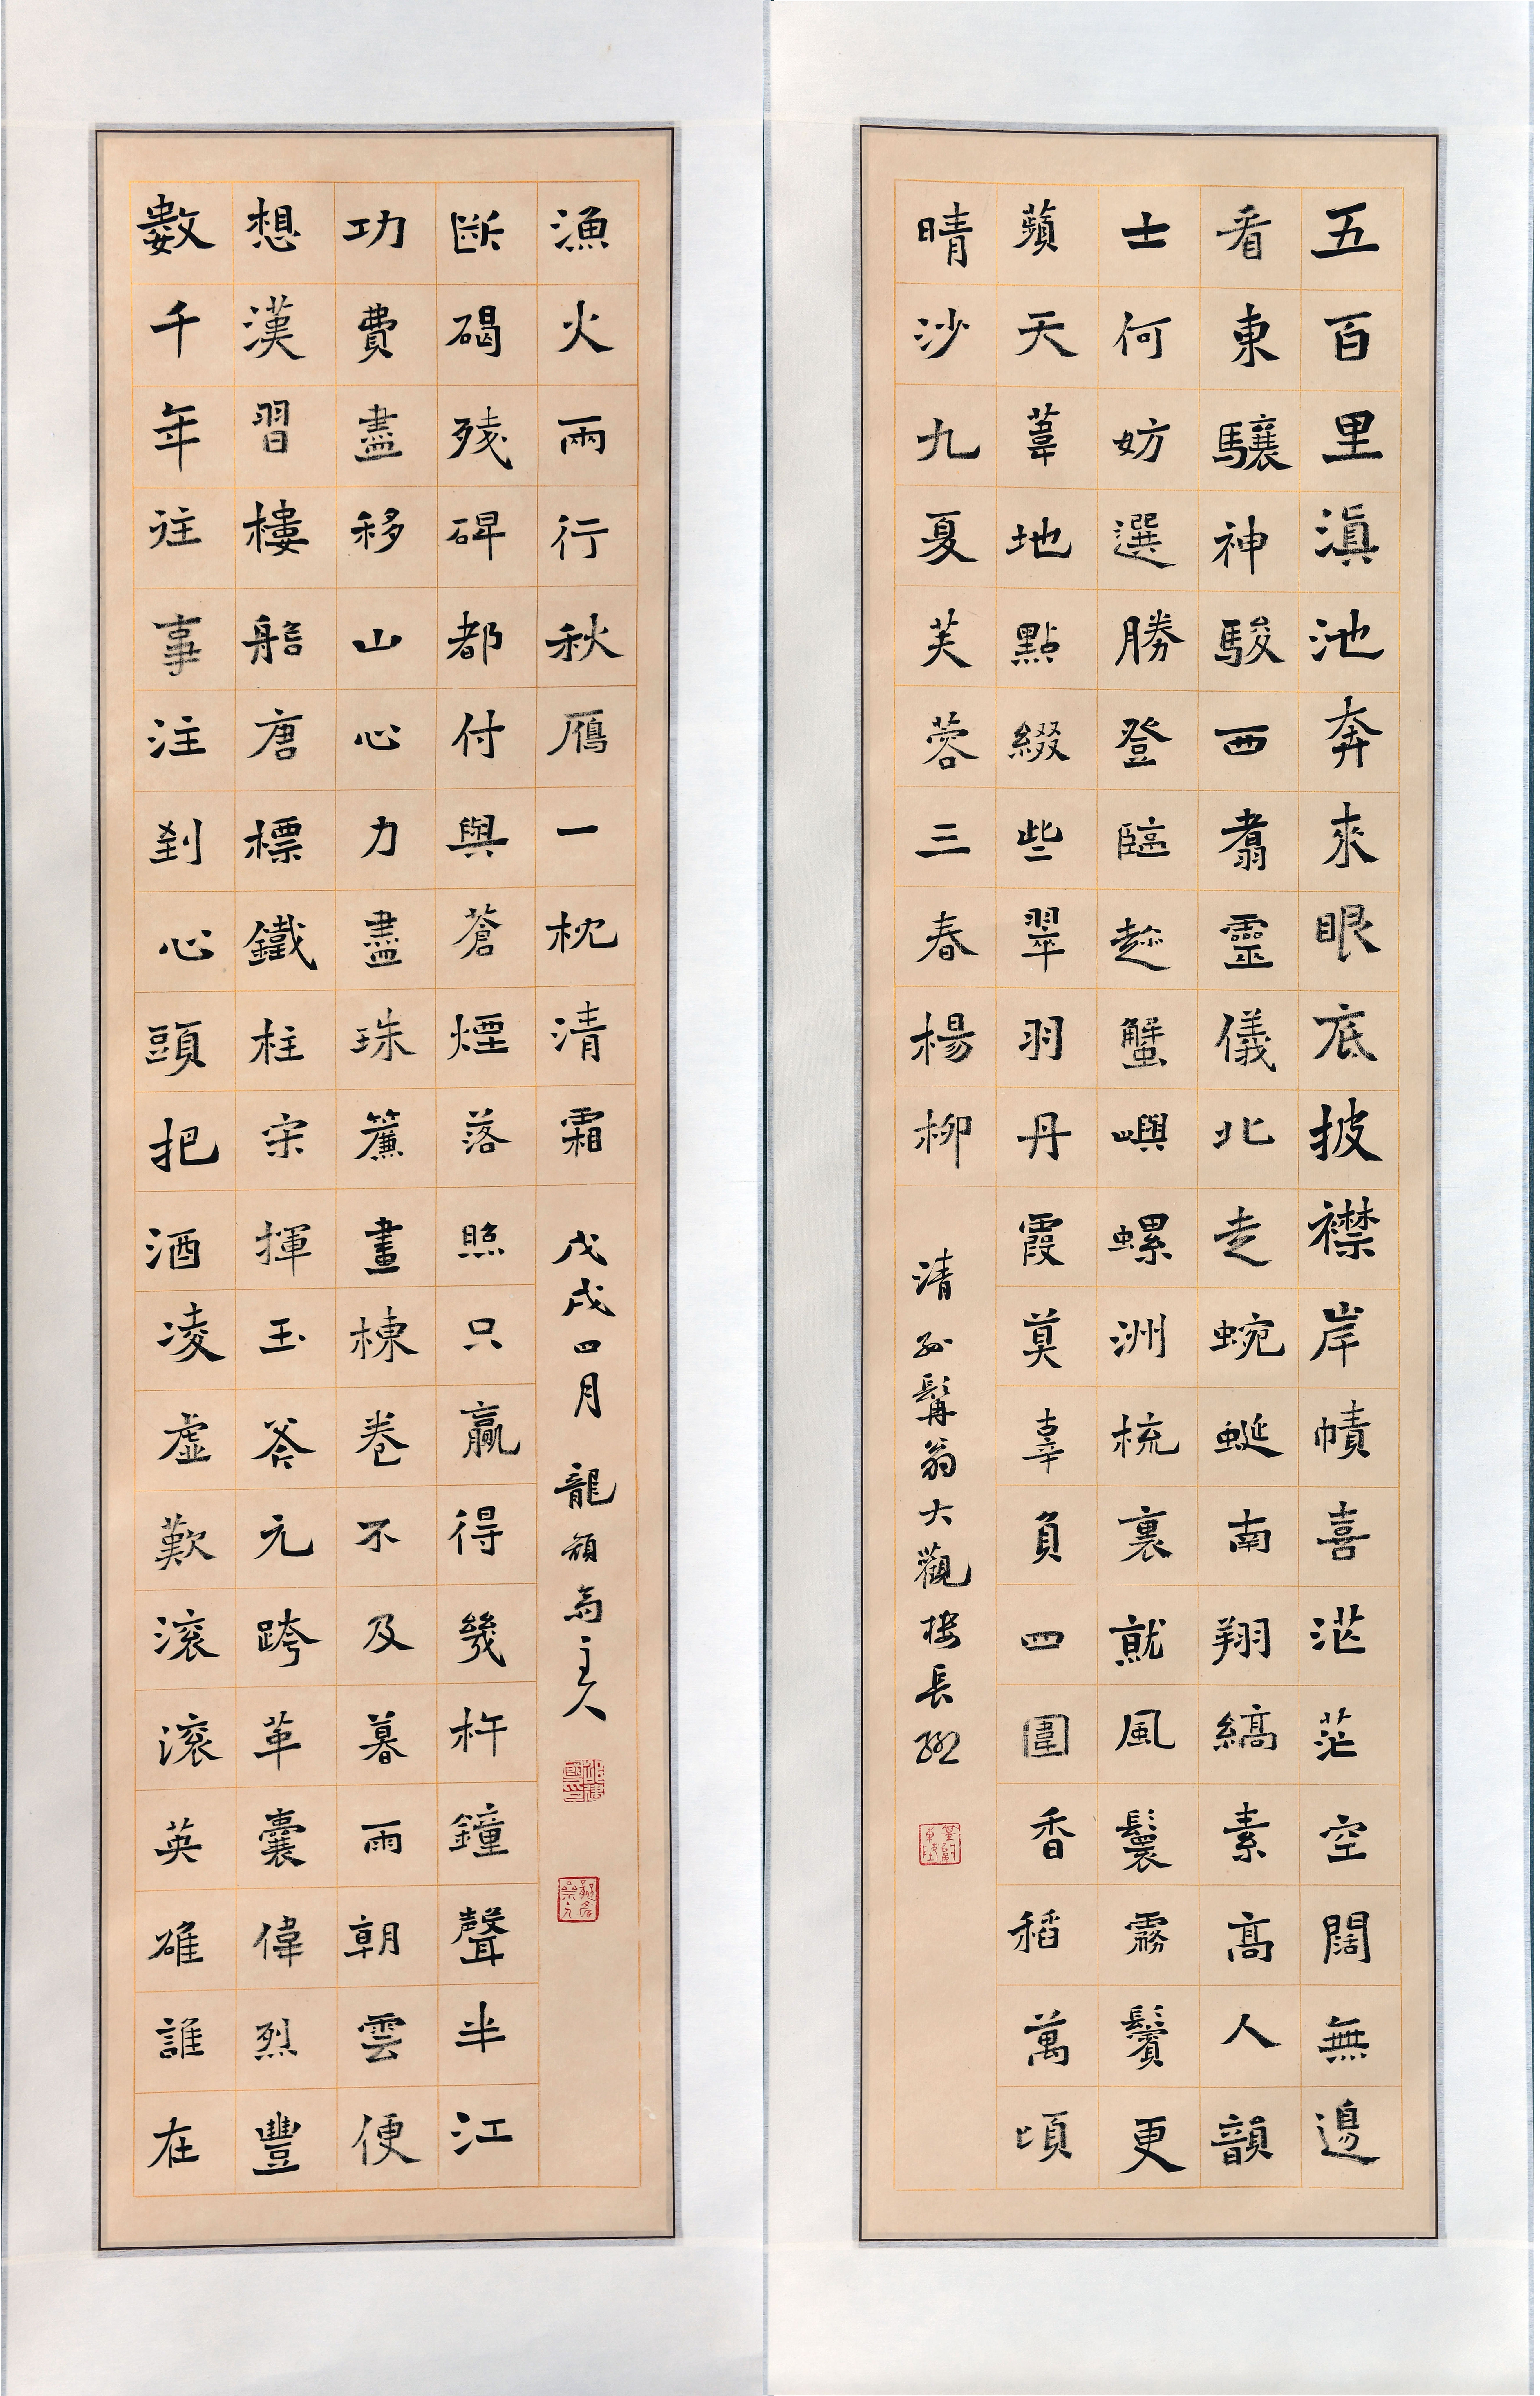 五百里滇池奔來眼底披襟岸幘喜茫茫空闊無邊
看東驤神駿西翥靈儀北走蜿蜒南翔縞素高人韻
士何妨選勝登臨趁蟹嶼螺洲梳裹就風鬟霧鬢更
蘋天葦地點綴些翠羽丹霞莫辜負四圍香稻萬頃
晴沙九夏芙蓉三春楊柳
清孫髯翁大觀樓長聯
數千年往事注到心頭把酒凌虛歎滾滾英雄誰在
想漢習樓船唐標鐵柱宋揮玉斧元跨革囊偉烈豐
功費盡移山心力盡珠簾畫棟卷不及暮雨朝雲便
斷碣殘碑都付與蒼煙落照只贏得幾杵鐘聲半江
漁火兩行秋鴈一枕清霜
戊戌四月 龍 齋主人